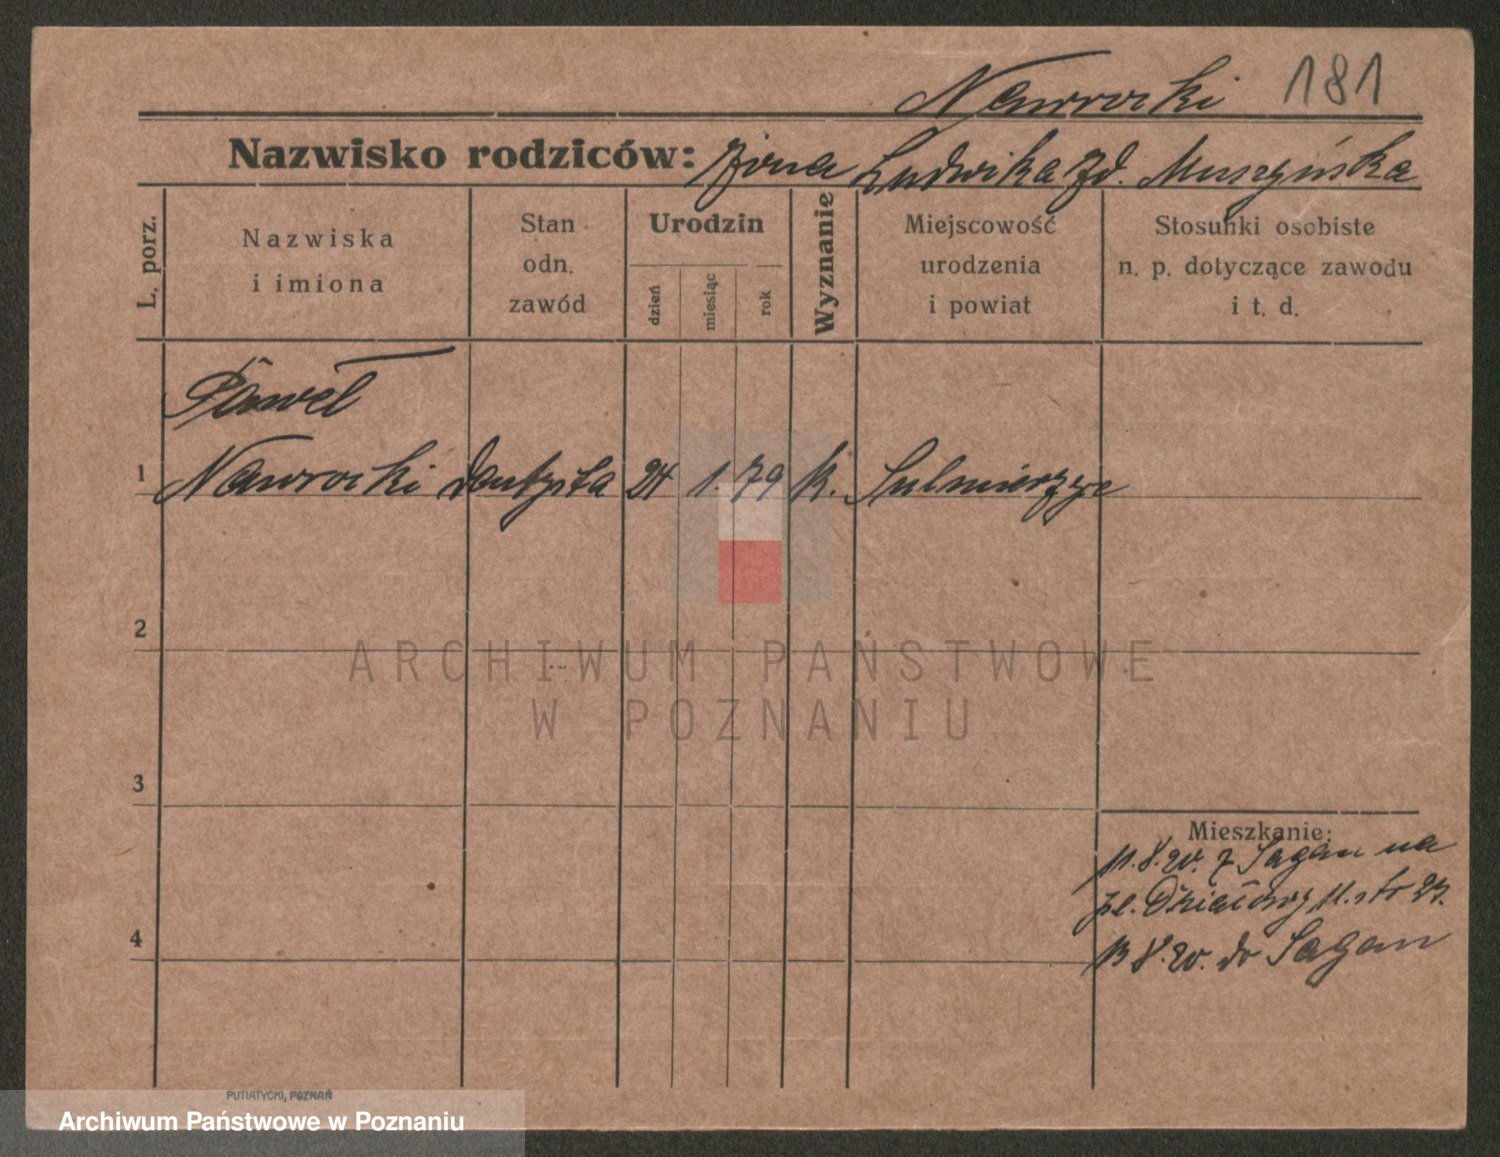 Nawrocki 181
Nazwisko rodziców: żona Ludwika zd. Muszyńska
L. porz.
Nazwiska
i imiona
Stan
odn.
zawód
Urodzin
dzień
miesiąc
rok
Wyznanie
Miejscowość
urodzenia
i powiat
Stosunki osobiste
n. p. dotyczące zawodu
i t. d.
Paweł
1 Nawrocki dentysta 24 1. 79 k. Sulmierzyce
2
ARCHIWUM PAŃSTWOWE
W POZNANIU
3
Mieszkanie:
11.8.20. z Sagan na
pl. Działowy 11. str
4
13 8.20. do Sagan
PUTIATYCKI, POZNAŃ
Archiwum Państwowe w Poznaniu